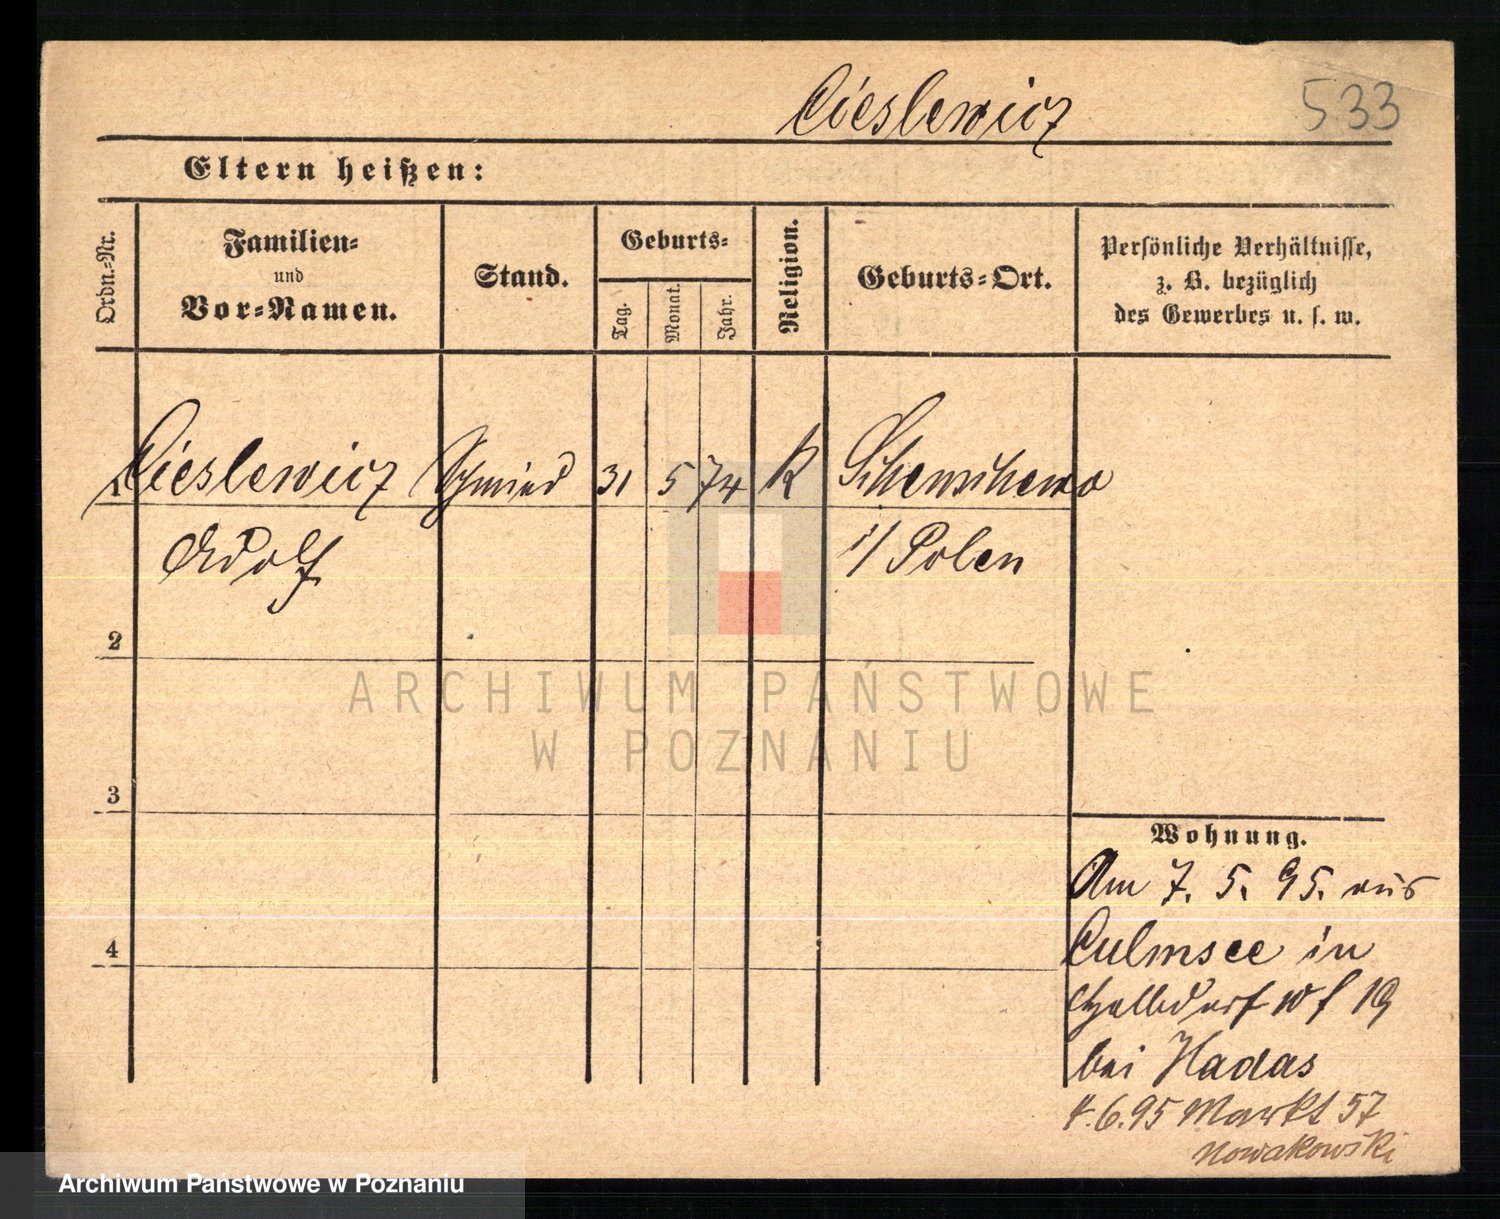 Cieslewicz 533
Eltern heißen:
Ordn.-Nr. Familien- und Vor-Namen. Stand. Geburts- Tag. Monat. Jahr. Religion. Geburts-Ort. Persönliche Verhältnisse, z. B. bezüglich des Gewerbes u. s. w.
1 Cieslewicz Schmied 31 5 74 K
Adolf i/ Polen
2
ARCHIWUM PAŃSTWOWE
W POZNANIU
3
Wohnung.
Am 7. 5. 95. aus
4 Culmsee in
19
bei Hadas
4.6.95 Markt 57
Nowakowski
Archiwum Państwowe w Poznaniu